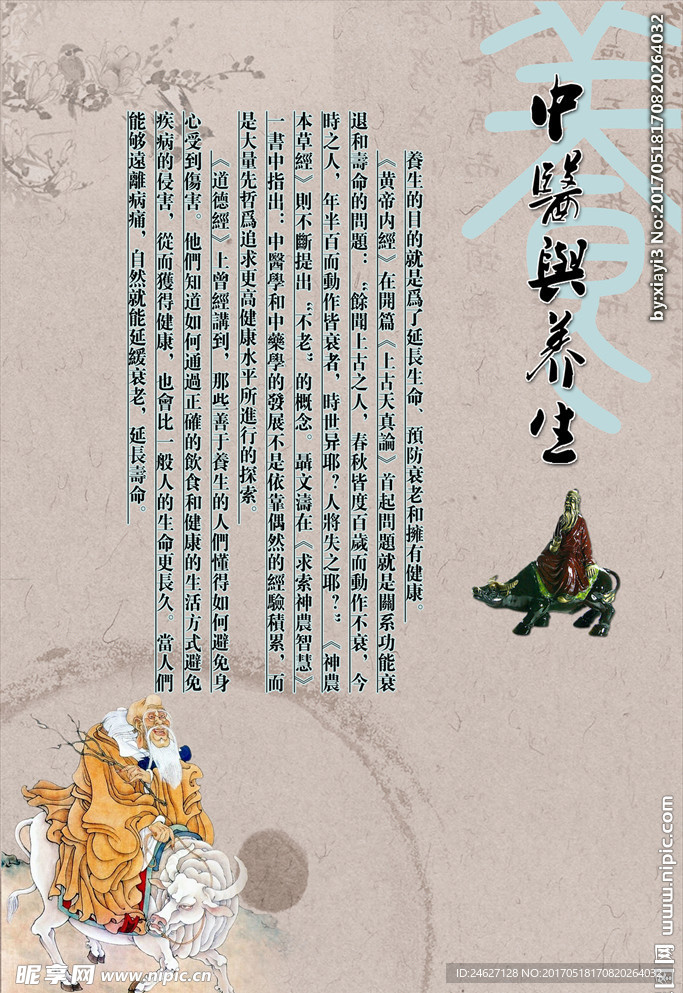 養
中醫與养生
養生的目的就是爲了延長生命、預防衰老和擁有健康。
《黄帝内經》在開篇《上古天真論》首起問題就是關系功能衰
退和壽命的問題：“餘聞上古之人，春秋皆度百歲而動作不衰，今
時之人，年半百而動作皆衰者，時世异耶？人將失之耶？”《神農
本草經》則不斷提出“不老”的概念。聶文濤在《求索神農智慧》
一書中指出：中醫學和中藥學的發展不是依靠偶然的經驗積累，而
是大量先哲爲追求更高健康水平所進行的探索。
《道德經》上曾經講到，那些善于養生的人們懂得如何避免身
心受到傷害。他們知道如何通過正確的飲食和健康的生活方式避免
疾病的侵害，從而獲得健康，也會比一般人的生命更長久。當人們
能够遠離病痛，自然就能延緩衰老，延長壽命。
by:xiayf3 No:20170518170820264032
www.nipic.com
昵享网 www.nipic.cn
ID:24627128 NO:20170518170820264032